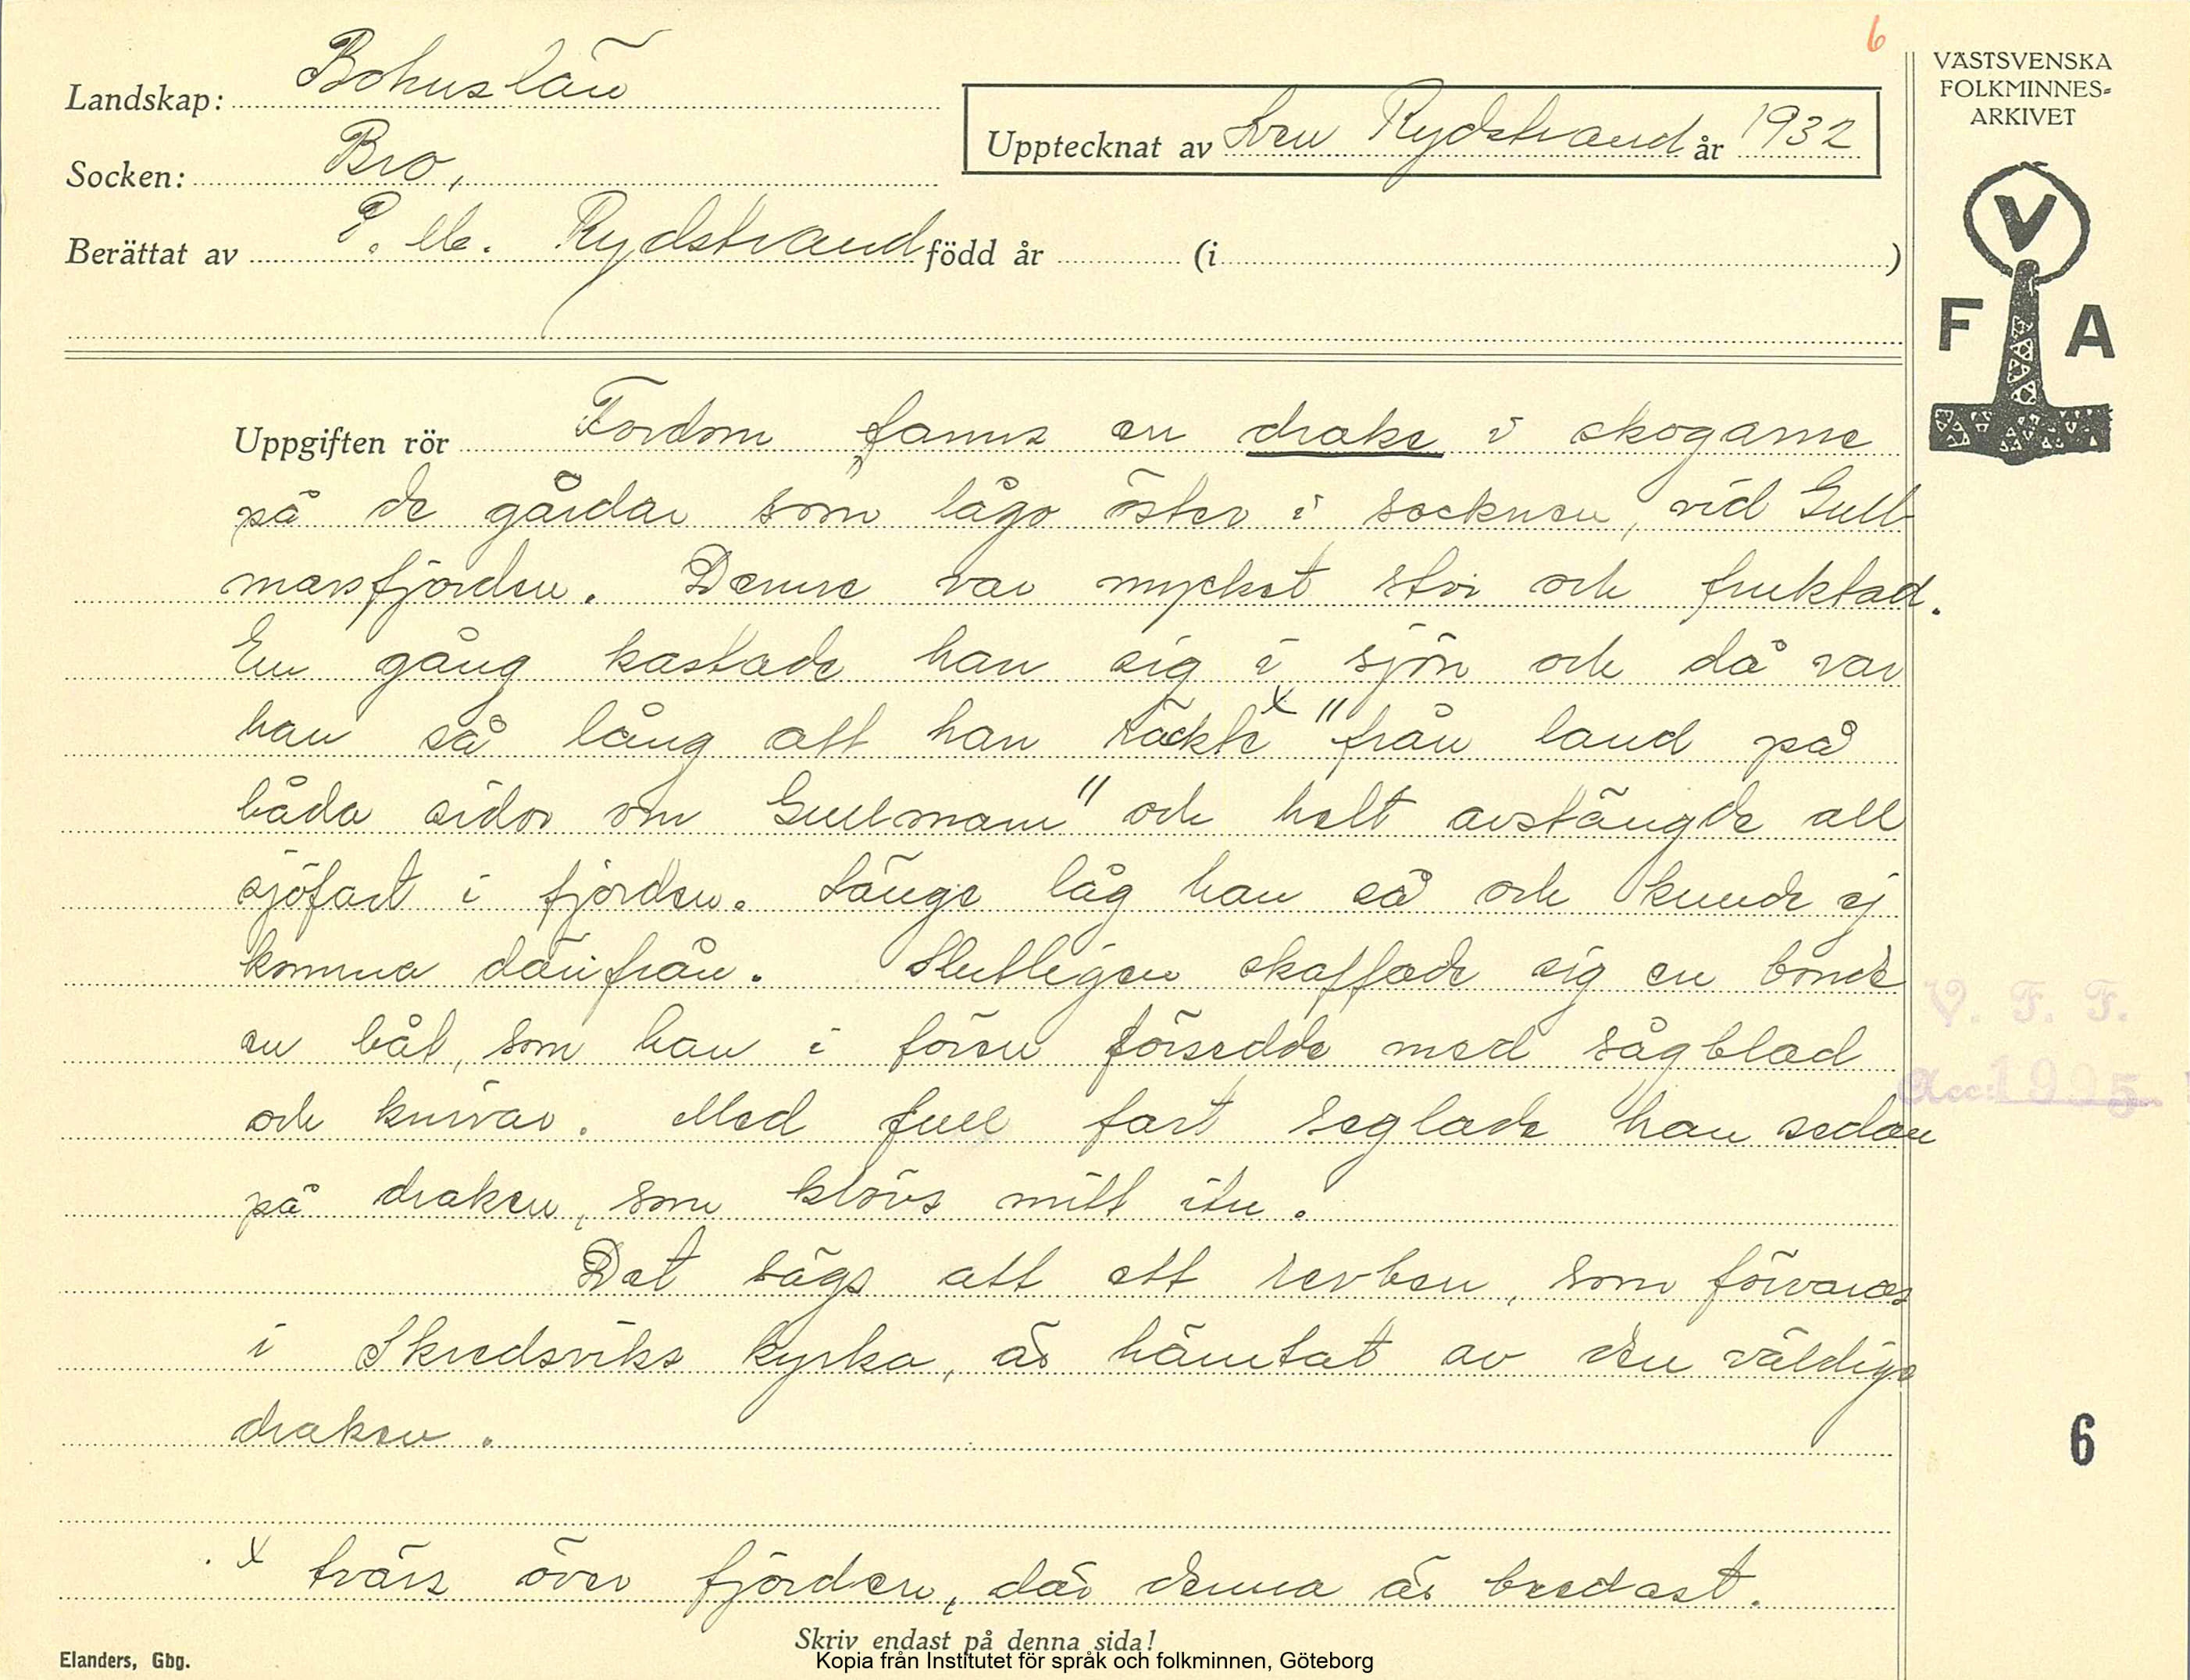 6
Landskap: Bohuslän
Upptecknat av Sven Rydstrand år 1932
Socken: Bro,
Berättat av P. M. Rydstrand född år (i )
VÄSTSVENSKA
FOLKMINNES-
ARKIVET
V
F A
Uppgiften rör Fordom fanns en drake i skogarne
på de gårdar som lågo öster i socknen, vid Gull
marsfjorden. Denne var mycket stor och fruktad.
En gång kastade han sig i sjön och då var
han så lång att han räckte x "från land på
båda sidor om Gullmarn" och helt avstängde all
sjöfart i fjorden. Länge låg han så och kunde ej
komma därifrån. Slutligen skaffade sig en bonde
en båt, som han i fören försedde med sågblad
och knivar. Med full fart seglade han sedan
på draken, som klövs mitt itu.
Det sägs att ett revben, som förvaras
i Skredsviks kyrka, är hämtat av den väldige
draken.
x tvärs över fjorden, där denna är bredast.
V. F. F.
Acc. 1995
6
Skriv endast på denna sida!
Elanders, Gbg.
Kopia från Institutet för språk och folkminnen, Göteborg